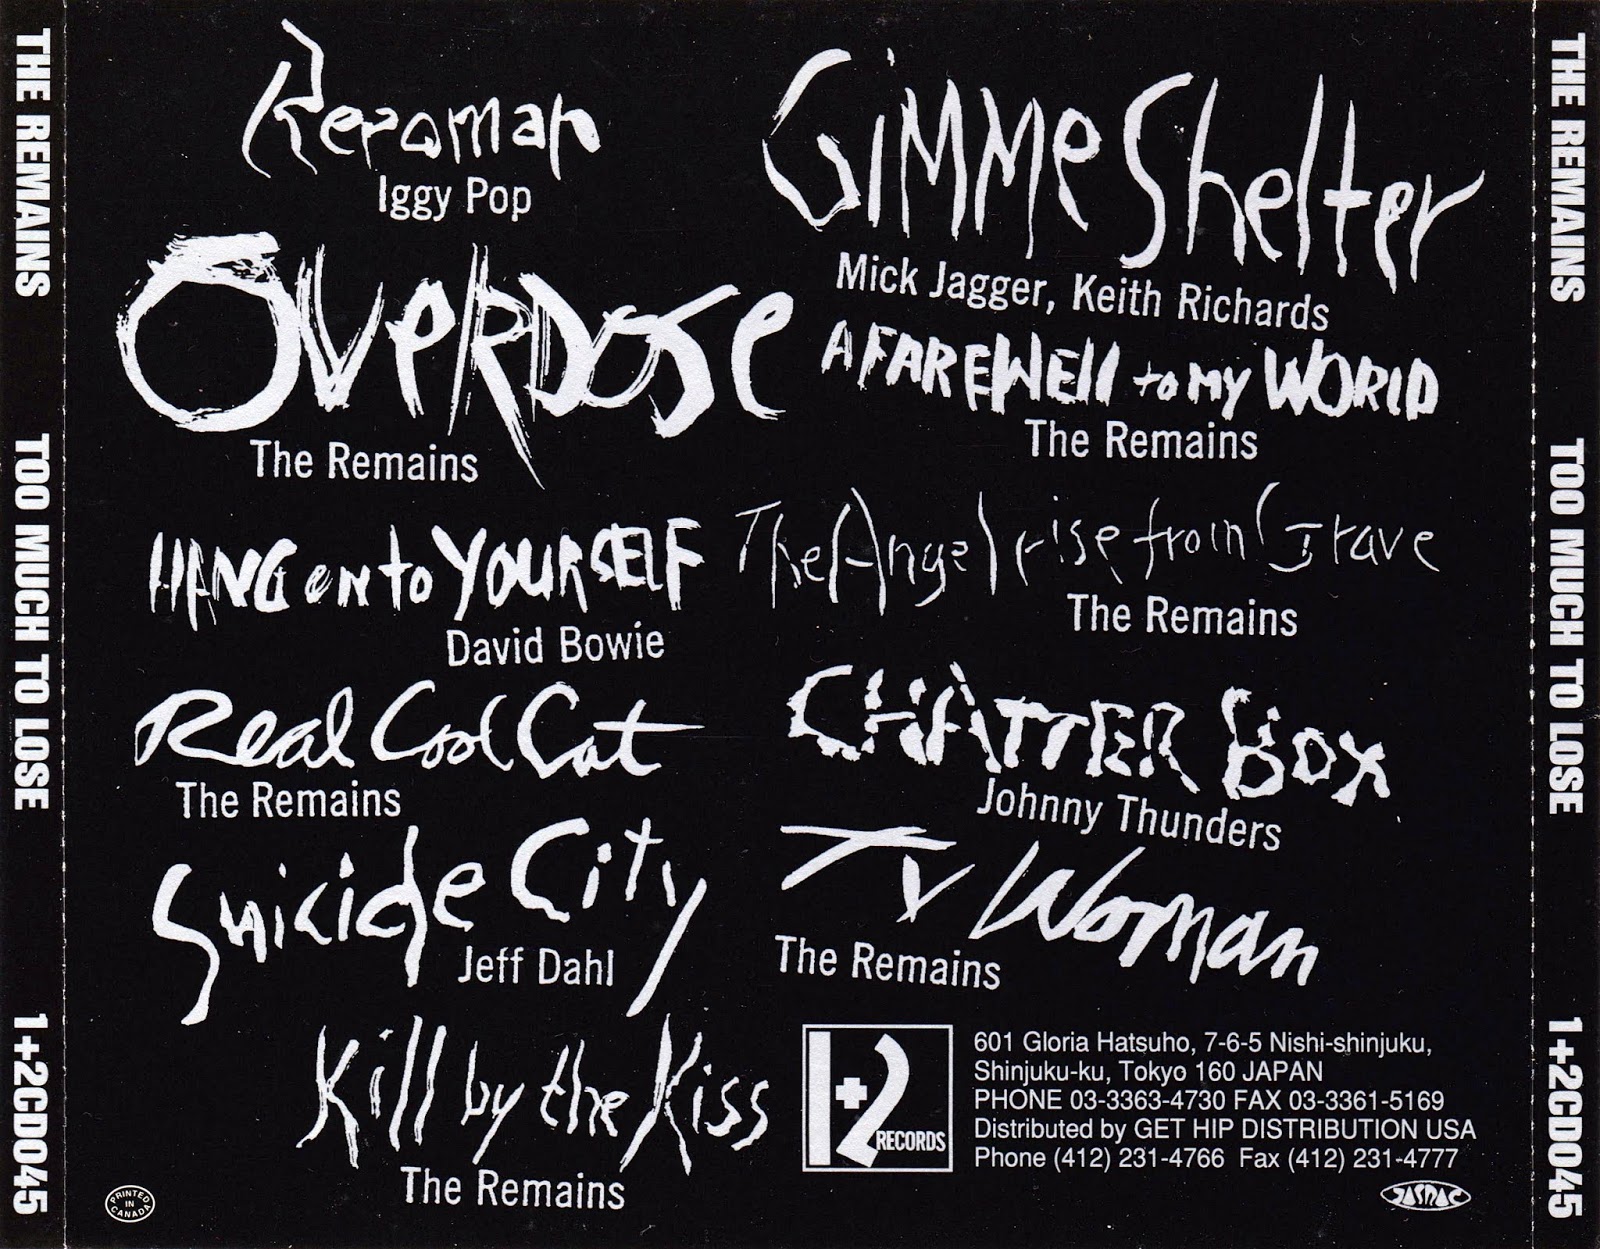 THE REMAINS TOO MUCH TO LOSE 1+2CD045
Repoman
Iggy Pop
Overdose
The Remains
HANG on to YOURSELF
David Bowie
Real Cool Cat
The Remains
Suicide City
Jeff Dahl
Kill by the Kiss
The Remains
GiMMe Shelter
Mick Jagger, Keith Richards
A FAREWEll to My WORlD
The Remains
The Angel rise from Grave
The Remains
CHATTER BOX
Johnny Thunders
TV Woman
The Remains
1+2 RECORDS
601 Gloria Hatsuho, 7-6-5 Nishi-shinjuku,
Shinjuku-ku, Tokyo 160 JAPAN
PHONE 03-3363-4730 FAX 03-3361-5169
Distributed by GET HIP DISTRIBUTION USA
Phone (412) 231-4766 Fax (412) 231-4777
PRINTED IN CANADA
JASRAC
THE REMAINS TOO MUCH TO LOSE 1+2CD045